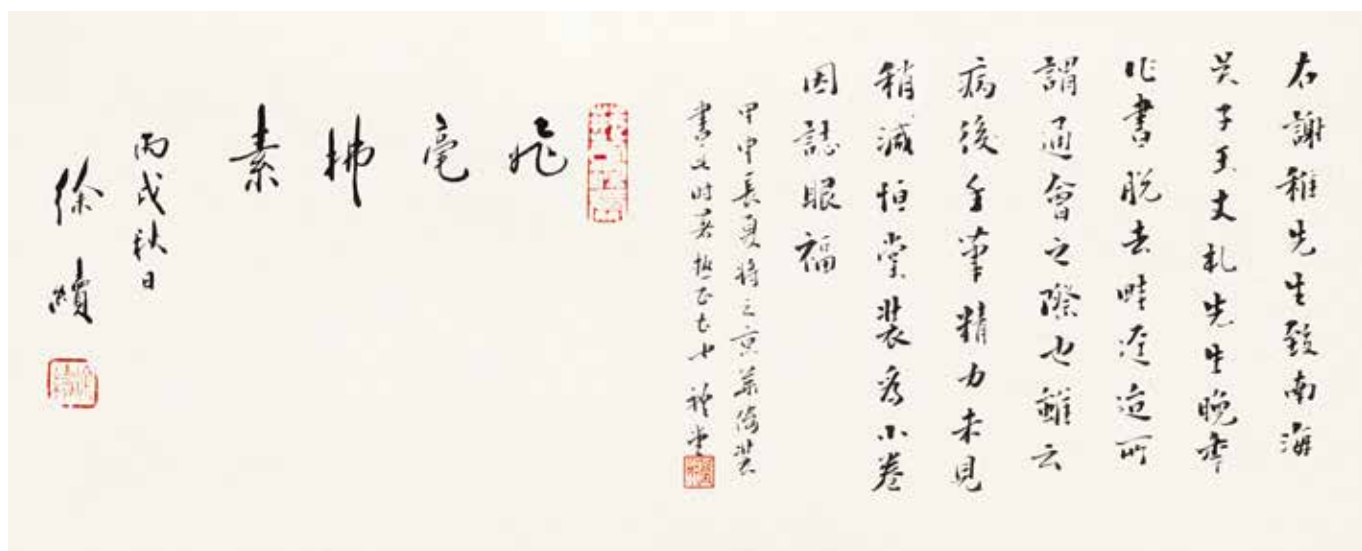 右謝稚先生致南海
吳子玉丈札先生晚年
作書脫去畦逕迨所
謂通會之際也雖云
病後手筆精力未見
稍減恒堂裝為小卷
因誌眼福
甲申長夏將之京華倚裝
書此時
飛
毫
拂
素
丙戌秋日
徐續